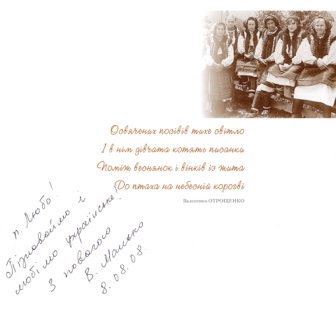 Освячених посівів тихе світло
І в нім дівчата котять писанки
Поміж веснянок і вінків із жита
До птаха на небесній корогві
Валентина ОТРОЩЕНКО
п. Любо!
Пізнаваймо і
любімо українське!
З повагою
В. Манько
8.08.08